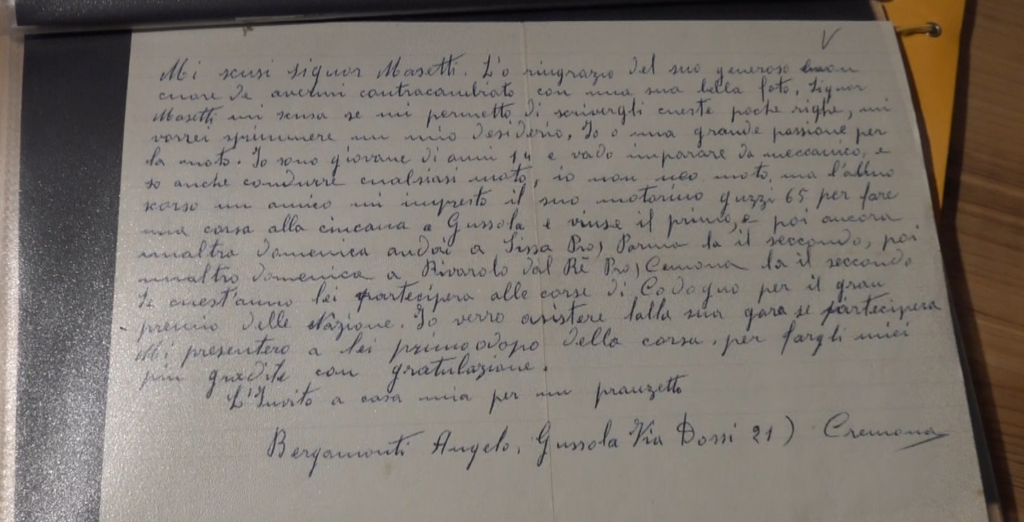 V
Mi scusi Signor Masetti. L'o ringrazio del suo generoso buon
cuore de avermi contracambiato con una sua bella foto, Signor
Masetti mi scusa se mi permetto di scrivergli cueste poche righe, mi
vorrei sprimmere un mio desiderio, Io o una grande passione per
la moto. Io sono giovane di anni 14 e vado imparare da meccanico, e
so anche condurre cualsiasi moto, io non neo moto, ma l'altro
scorso un amico mi impresto il suo motorino guzzi 65 per fare
una corsa alla cincana a Gussola e vinse il primo, e poi ancora
unaltra domenica andai a Sissa Pro, Parma la il seccondo, poi
unaltro domenica a Rivarolo dal Rè Pro, Cremona la il seccondo
Se cuest'anno lei partecipera alle corse di Codogno per il gran
premio delle Nazione. Io verro asistere lalla sua gara se partecipera
Mi presentero a lei primo odopo della corsa, per fargli miei
più gradite con gratulazione.
L'Invito a casa mia per un pranzetto
Bergamonti Angelo, Gussola Via Dossi 21) Cremona